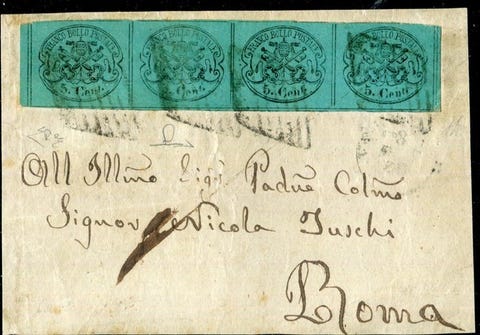 FRANCO BOLLO POSTALE FRANCO BOLLO POSTALE FRANCO BOLLO POSTALE FRANCO BOLLO POSTALE
5. Cent 5. Cent 5. Cent 5. Cent
All Illmo Sigr Padne Colmo
Signor Nicola Tuschi
Roma